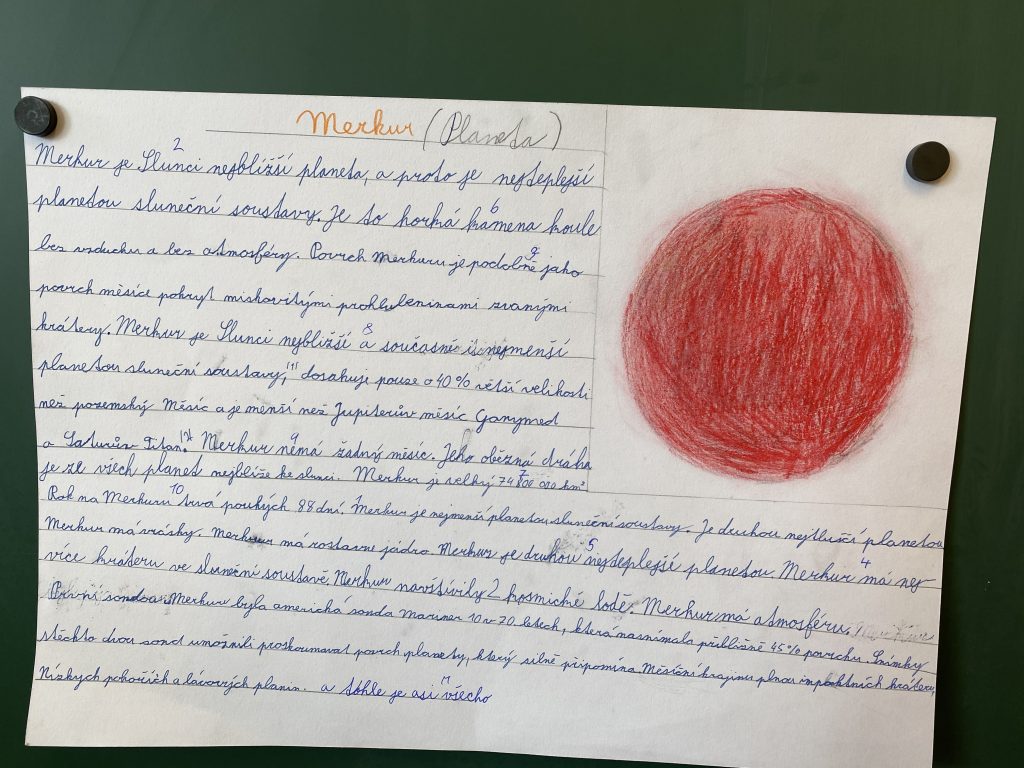 Merkur (Planeta)
Merkur je Slunci nejbližší planeta, a proto je nejteplejší
planetou sluneční soustavy. Je to horká kamena koule
bez vzduchu a bez atmosféry. Povrch Merkuru je podobně jako
povrch měsíce pokryt miskovitými prohlubeninami zvanými
krátery. Merkur je Slunci nejbližší a současně i nejmenší
planetou sluneční soustavy, dosahuje pouze o 40% větší velikosti
než pozemský Měsíc a je menší než Jupiterův měsíc Ganymed
a Saturův Titan. Merkur nemá žádný měsíc. Jeho oběžná dráha
je ze všech planet nejblíže ke slunci. Merkur je velký 74 800 000 km²
Rok na Merkuru trvá pouhých 88 dní. Merkur je nejmenší planetou sluneční soustavy. Je druhou nejtlušší planetou
Merkur má vrásky. Merkur má rostavne jádro Merkur je druhou nejteplejší planetou Merkur má nej-
více kráteru ve sluneční soustavě. Merkur navštívily 2 kosmické lodě. Merkur má atmosféru.
První sonda Merkur byla americká sonda Mariner 10 v 70. letech, která nasnímala přibližně 45% povrchu. Snímky
stěchto dvou sond umožnili proskoumavat povrch planety, který silně připomína Měsíční krajinu plnou impaktních kráteru,
Nízkých pohořích a lávových planin. a tohle je asi všecho